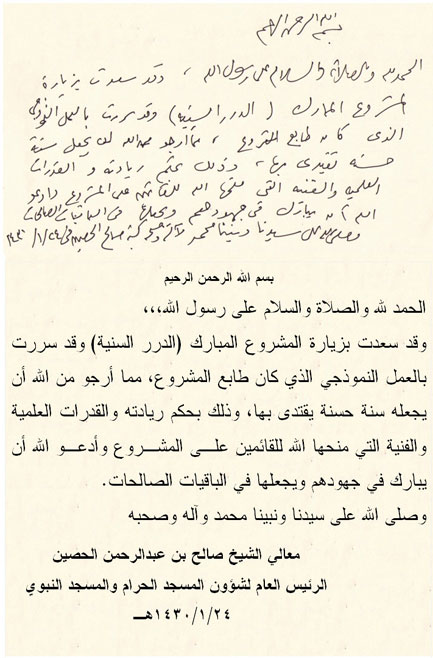 بسم الله الرحمن الرحيم
الحمد لله والصلاة والسلام على رسول الله ، وقد سعدت بزيارة
المشروع المبارك (الدرر السنية) وقد سررت بالعمل النموذجي
الذي كان طابع المشروع ، مما أرجو من الله أن يجعله سنة
حسنة يقتدى بها ، وذلك بحكم ريادته والقدرات
العلمية والفنية التي منحها الله للقائمين على المشروع وادعو
الله أن يبارك في جهودهم ويجعلها في الباقيات الصالحات
وصلى الله على سيدنا ونبينا محمد وآله وصحبه صالح الحصين في ١٤٣٠/١/٢٤
بسم الله الرحمن الرحيم
الحمد لله والصلاة والسلام على رسول الله،،،
وقد سعدت بزيارة المشروع المبارك (الدرر السنية) وقد سررت
بالعمل النموذجي الذي كان طابع المشروع، مما أرجو من الله أن
يجعله سنة حسنة يقتدى بها، وذلك بحكم ريادته والقدرات العلمية
والفنية التي منحها الله للقائمين علـــى المشـــروع وأدعـــو الله أن
يبارك في جهودهم ويجعلها في الباقيات الصالحات.
وصلى الله على سيدنا ونبينا محمد وآله وصحبه
معالي الشيخ صالح بن عبدالرحمن الحصين
الرئيس العام لشؤون المسجد الحرام والمسجد النبوي
١٤٣٠/١/٢٤هـــ